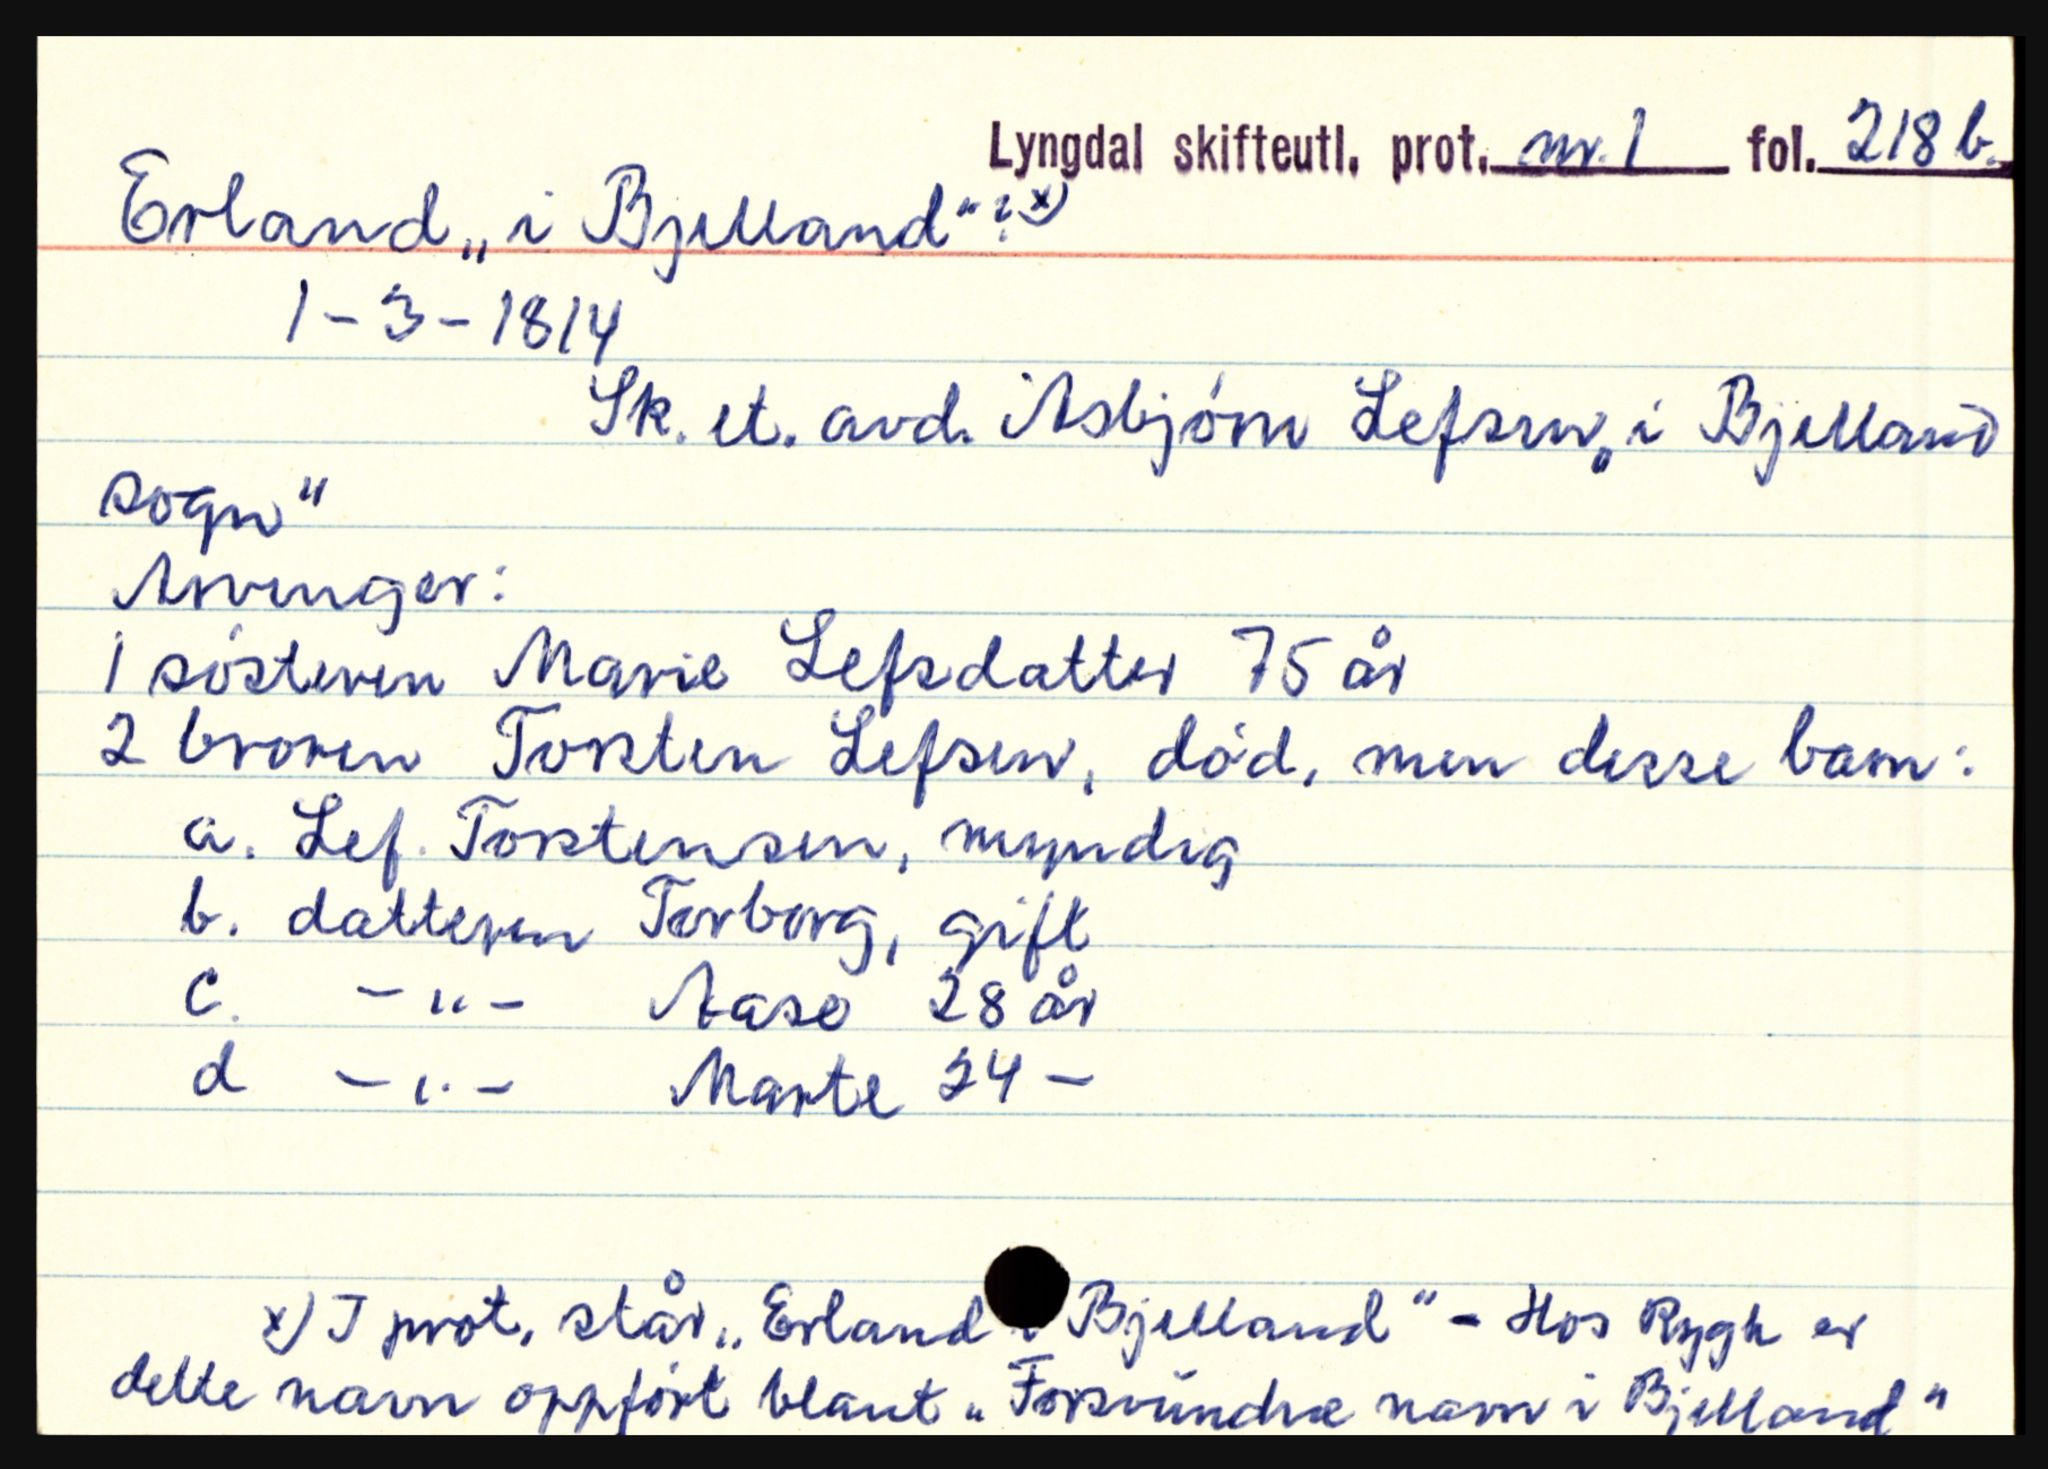 Lyngdal skifteutl. prot. nr. 1 fol. 218 b.
Erland „i Bjelland“? x)
1-3-1814
Sk. et. avd. Asbjørn Lefsen „i Bjelland
sogn“
Arvinger:
1 søsteren Marie Lefsdatter 75 år
2 broren Torsten Lefsen, død, men desse barn:
a. Lef Torstensen, myndig
b. datteren Torborg, gift
c. -"- Aase 28 år
d -"- Marte 24 -
x) I prot. står „Erland i Bjelland“ - Hos Rygh er
dette navn oppført blant „Forsvundne navn i Bjelland“